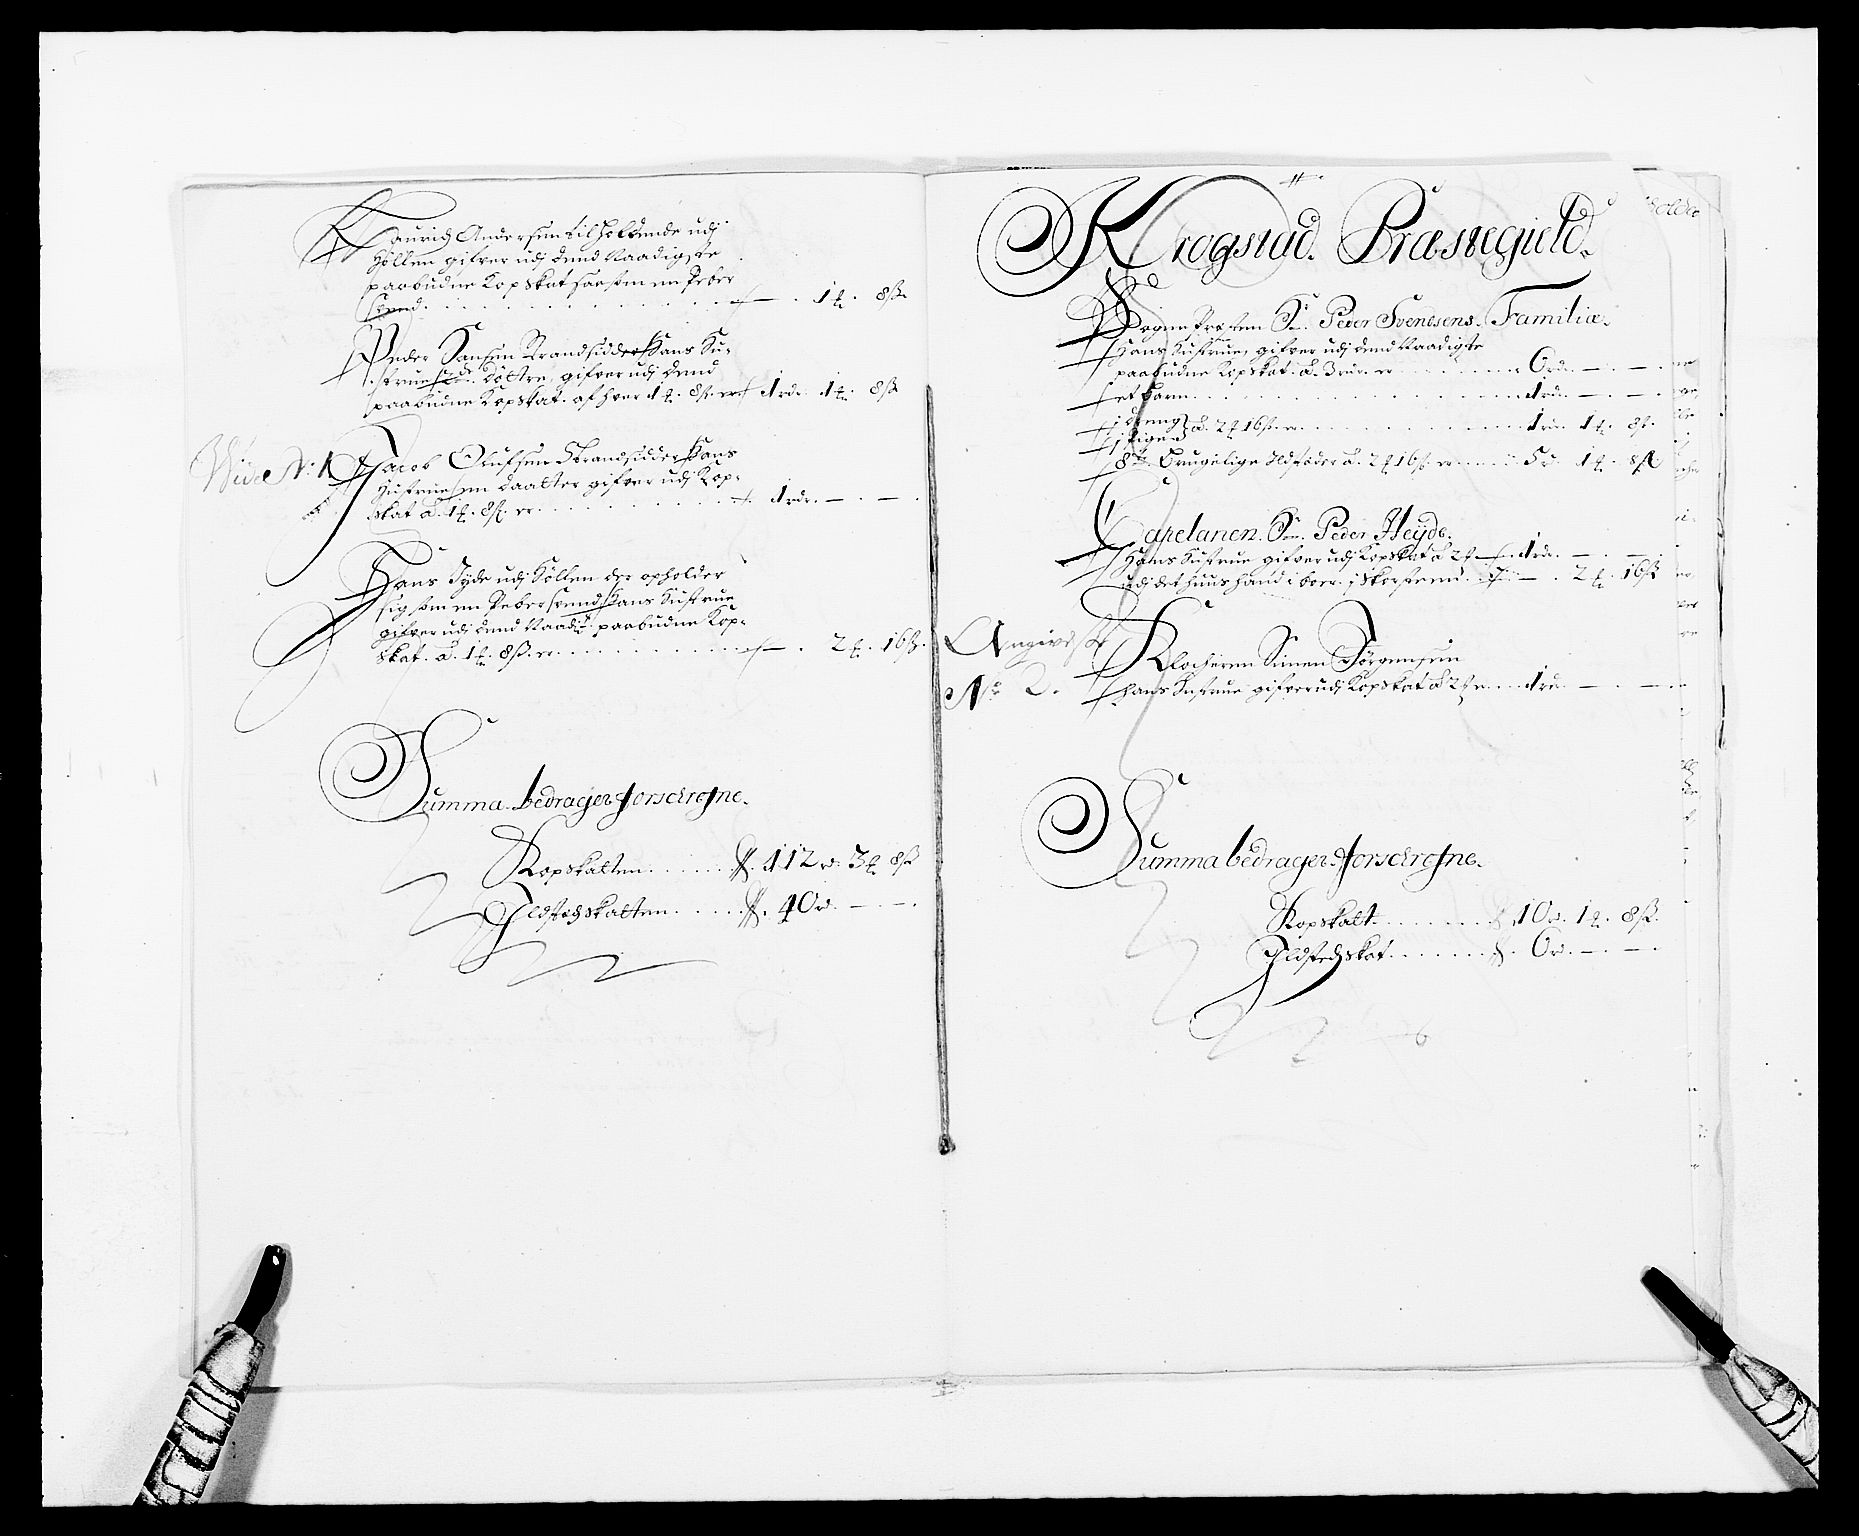 Lauridz Andersen til holdende udj
Hollen gifver udj dend Naadigste
paabudne Kopskat saasom en Peber
Svend . . . . 1 ₰. 8 ß.
Peder Hansen Strandsidder Hans Hu-
strue, 2de Døttre, gifver udj dend
paabudne Kopskat. af hver 1 ₰. 8 ß. er 1 rdr. 1 ₰. 8 ß
Wide N: 1
Jacob Olufsen Strandsidder Hans
Hustrue en daatter gifver udj Kop-
skat à 1 ₰. 8 ß. er . . . . 1 rdr. — . — .
Hans Jyde udj Hollen der opholder
sig som en Pebersvend Hans Hustrue
gifver udj dend Naadigste paabudne Kop-
skat. à. 1 ₰. 8 ß. er . . . . 2 ₰. 16 ß.
Summa bedrager forschrefne.
Kopskatten . . . . 112 r. 3 ₰ 8 ß
Ildstedskatten . . . . 40 r. — . — .
Krogstad. Præstegield.
Sogne Præsten Hr. Peder Svendsens. Familie.
Hans Hustrue, gifver udj dend Naadigste
paabudne Kopskat. à. 3 rdr. er . . . . 6 rdr. — . — .
et barn . . . . 1 rdr. — . — .
1 dreng
1 Pige à. 2 ₰ 16 ß. er . . . . 1 rdr. 1 ₰. 8 ß.
8te. Brugelige Ildsteder à. 2 ₰ 16 ß. er . . . . 5 r. 1 ₰. 8 ß
Capelanen. Hr. Peder Heyde.
Hans Hustrue gifver udj Kopskat à 2 ₰ . 1 rdr. — . — .
udj det huus hand i boer. 1 skorsteend . . . 2 ₰. 16 ß
Angivelse
No 2.
Klocheren Simen Jørgensen
hans Hustrue gifver udj Kopskat à 2 ₰ er . . 1 rdr. — . —
Summa bedrager forschrefne.
Kopskatt . . . . 10 r. 1 ₰. 8 ß.
Ildstedskat . . . . 6 r. — . — .